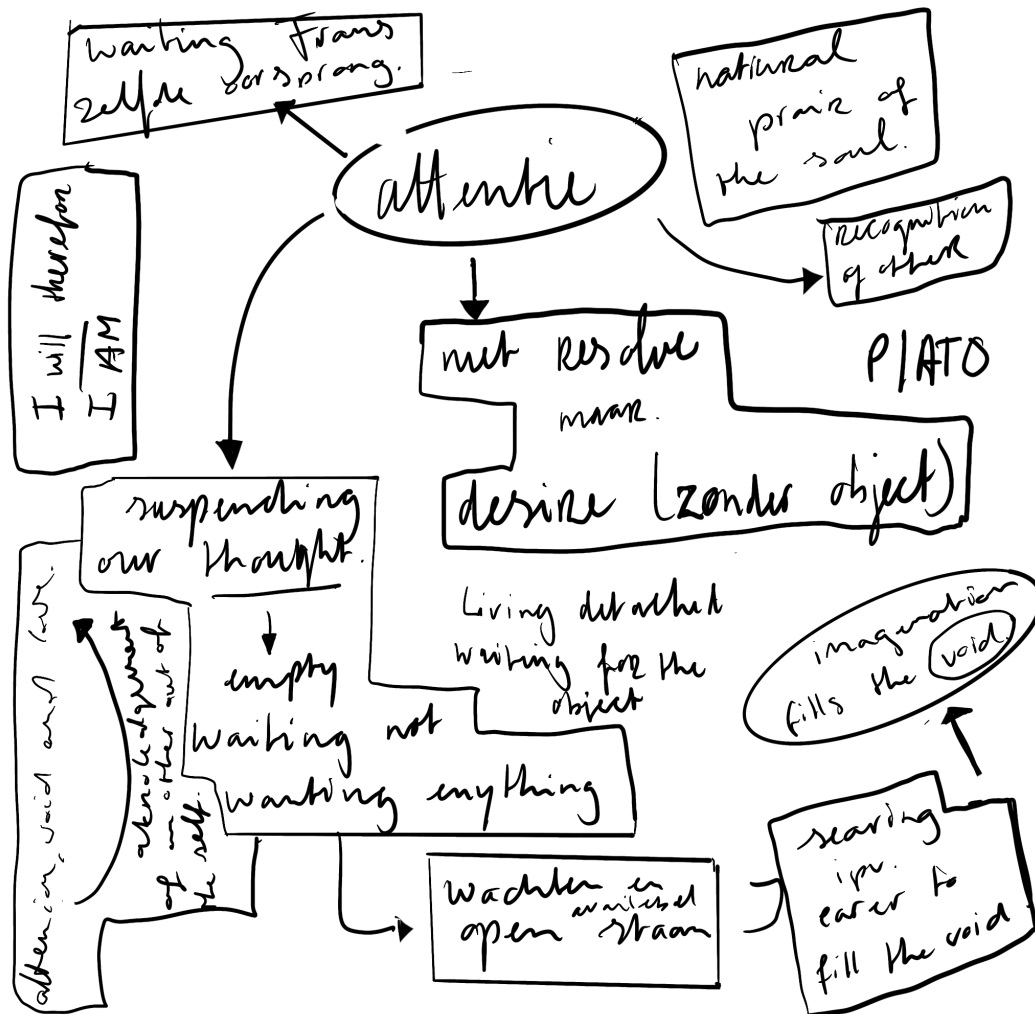 waiting Frans
zelfde oorsprong.
attentie
natiural
prair of
the soul.
recognition
of others
I will therefor
I AM
met Resolve
maar.
desire (zonder object)
PlATO
suspending
our thought.
empty
waiting not
wanting enything
Living detached
waiting for the
object
imagenation
fills the void
attencion, void and love.
aknoledgment
of an other out of
the self.
wachten en
open staan
searing
ipv.
earer to
fill the void